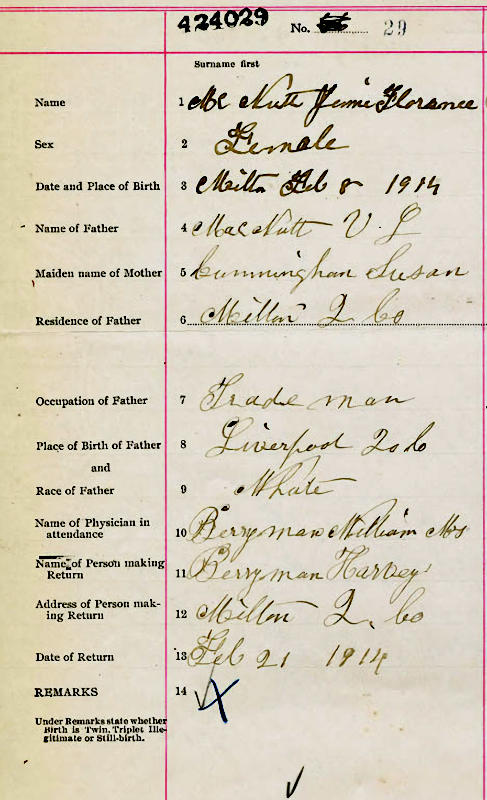 424029 No. 29
Surname first
Name 1 Mc Nutt Jennie Florance
Sex 2 Female
Date and Place of Birth 3 Milton Feb 8 1914
Name of Father 4 MacNutt V L
Maiden name of Mother 5 Cunninghan Susan
Residence of Father 6 Milton Q Co
Occupation of Father 7 Trade man
Place of Birth of Father 8 Liverpool Q Co
and
Race of Father 9 White
Name of Physician in
attendance 10 Berryman William Mrs
Name of Person making
Return 11 Berryman Harvey
Address of Person mak-
ing Return 12 Milton Q. Co
Date of Return 13 Feb 21 1914
REMARKS 14
Under Remarks state whether
Birth is Twin, Triplet Ille-
gitimate or Still-birth.